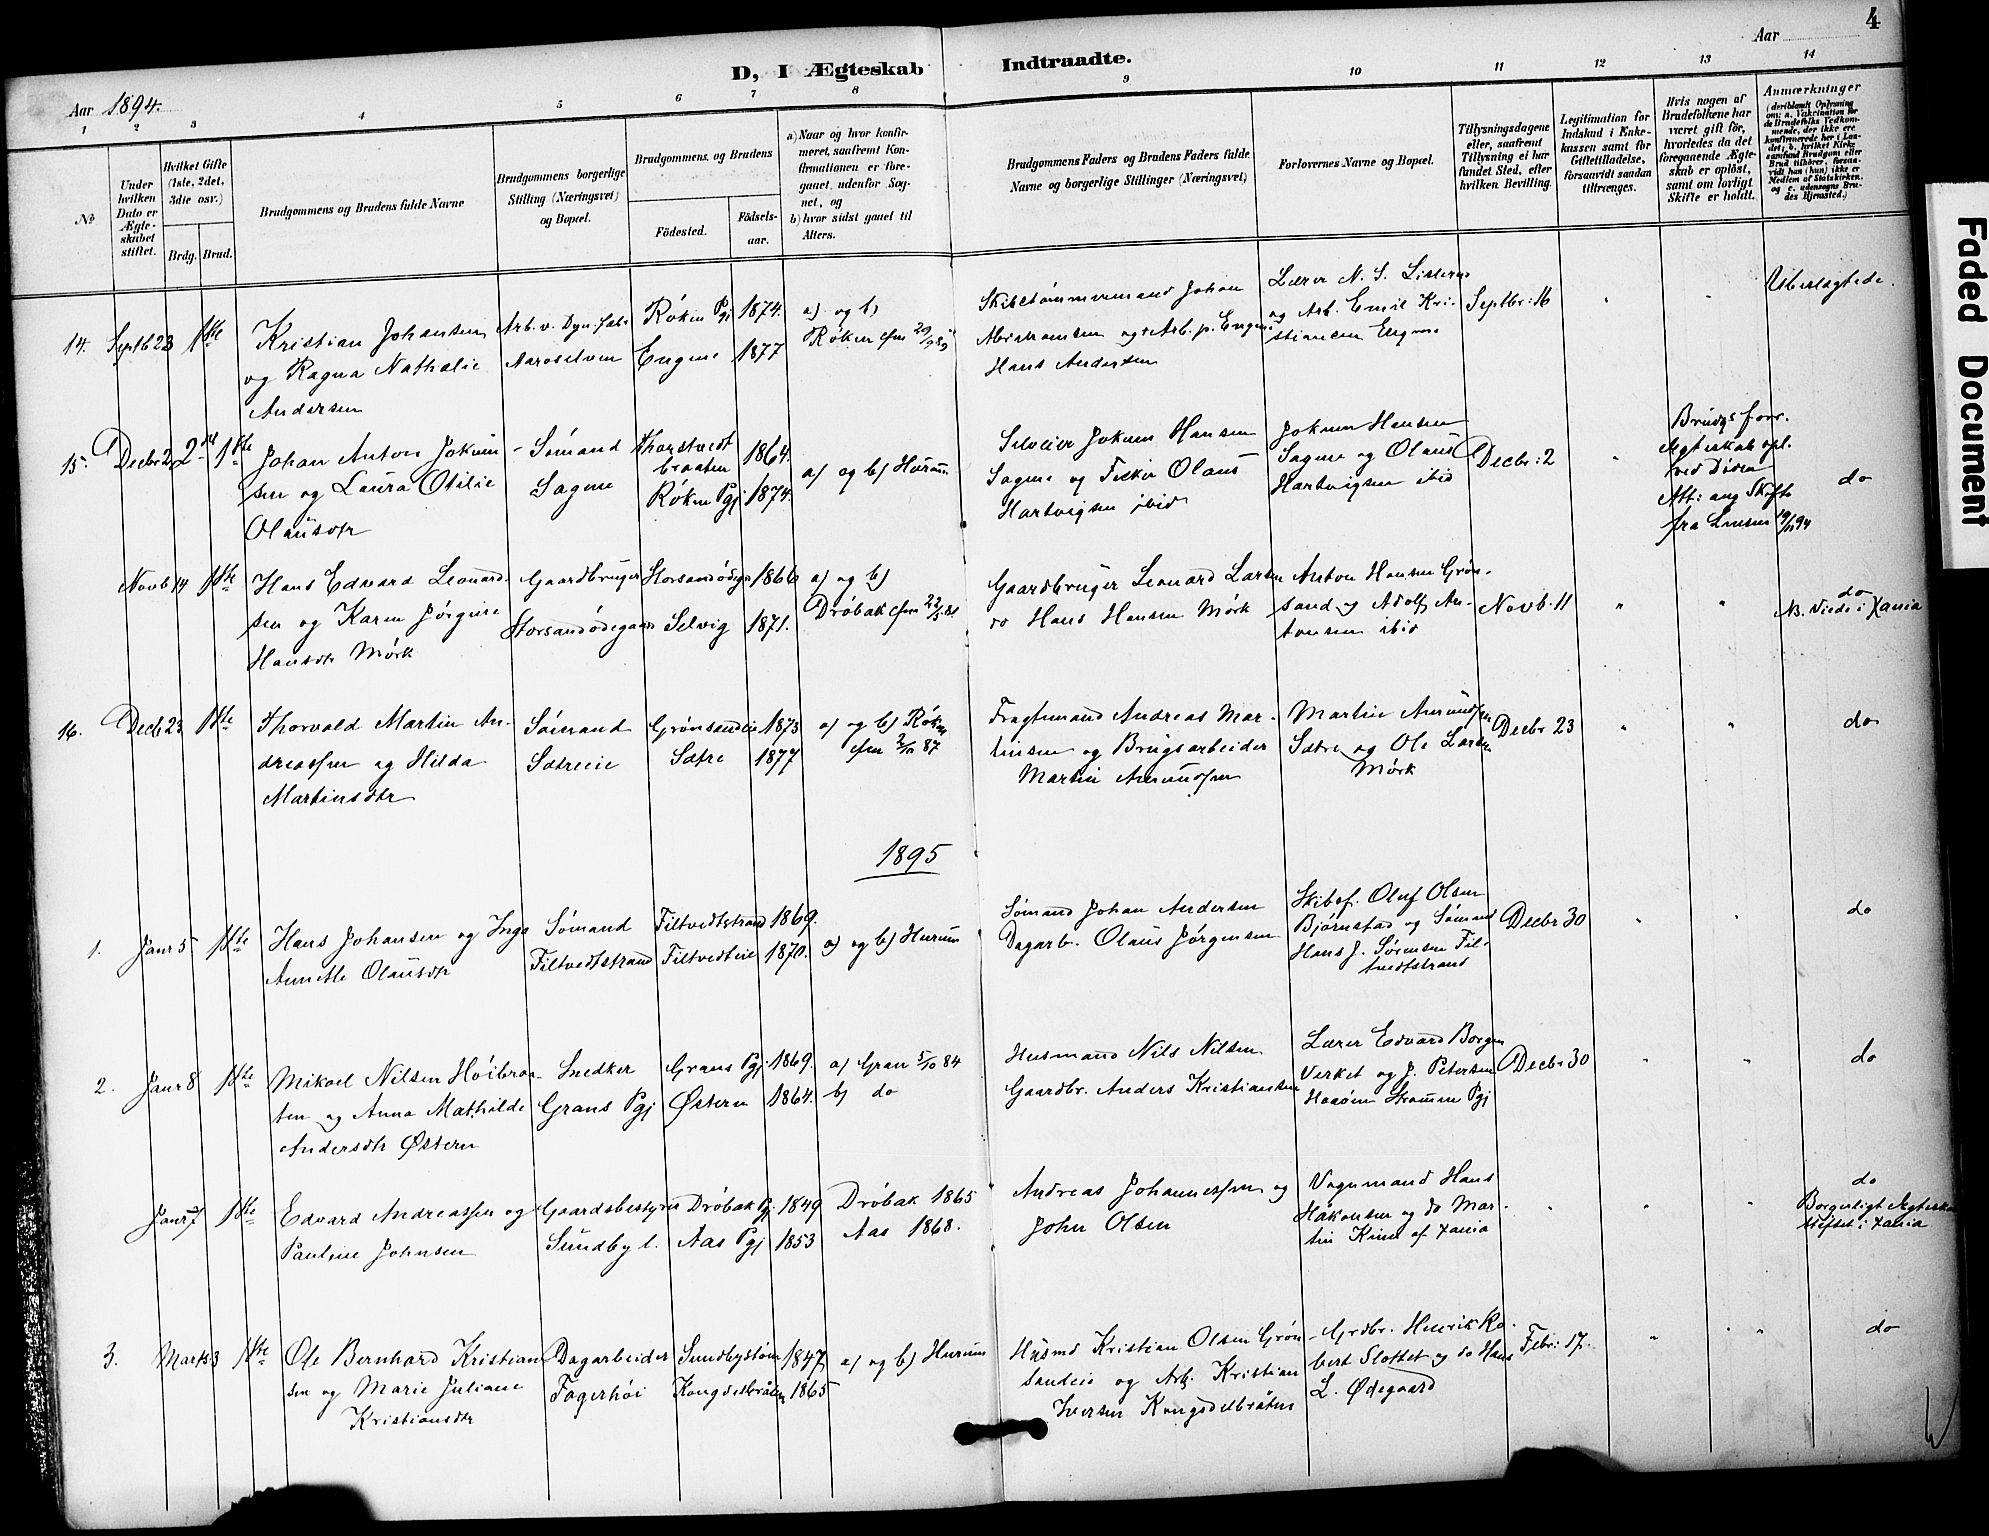 4
D, I Ægteskab Indtraadte.
Aar 1894. Aar
1 2 3 4 5 6 7 8 9 10 11 12 13 14
No
Under hvilken Dato er Ægteskabet stiftet.
Hvilket Gifte (1ste, 2det, 3die osv.)
Brdg. Brud.
Brudgommens og Brudens fulde Navne
Brudgommens borgerlige Stilling (Næringsvei) og Bopæl.
Brudgommens og Brudens
Födested. Födselsaar.
a) Naar og hvor konfirmeret, saafremt Konfirmationen er foregaaet udenfor Sognet, og
b) hvor sidst gaaet til Alters.
Brudgommens Faders og Brudens Faders fulde Navne og borgerlige Stillinger (Næringsvei)
Forlovernes Navne og Bopæl.
Tillysningsdagene eller, saafremt Tillysning ei har fundet Sted, efter hvilken Bevilling.
Legitimation for Indskud i Enkekassen samt for Giftetilladelse, forsaavidt saadan tiltrænges.
Hvis nogen af Brudefolkene har været gift för, hvorledes da det foregaaende Ægteskab er oplöst, samt om lovligt Skifte er holdt.
Anmærkninger
(deriblandt Oplysning om: a. Vakcination for de Brudefolks Vedkommende, der ikke ere konfirmerede her i Landet; b. hvilket Kirkesamfund Brudgom eller Brud tilhörer, forsaavidt han (hun) ikke er Medlem af Statskirken, og c. udensogns Brudes Hjemsted.)
14. Septb 23 1ste Kristian Johansen
og Ragna Nathalie
Andersen
Arb. v. Dyn. fabr
Aaroselven
Røken Pgj 1874.
Engene 1877
a) og b)
Røken
Skibstømmermand Johan
Abrahamsen og Arb. p. Engene
Hans Andersen
Lærer N. S. Listerud
og Arb. Emil Kristiansen Engene
Septbr: 16 " "
Ubeslægtede.
15. Decbr 2 1ste Johan Anton Jokumsen og Laura Otilie
Olausdtr
Sømand
Sagene
Thorstvedtbraaten 1864.
Røken Pgj 1874.
a) og b) Hurum
Selveier Jokum Hansen
Sagene og Fisker Olaus
Hartvigsen ibid
Jokum Hansen
Sagene og Olaus
Hartvigsen ibid
Decbr: 2 "
Brudgs forr.
Ægteskab opl.
ved Døden
Att: ang Skifte
fra
do
Novb 14 1ste Hans Edvard Leonardsen og Karen Jørgine
Hansdtr Mørk
Gaardbruger
Storsandødegaard
Storsandødeg 1866
Selvig 1871.
a) og b)
Drøbak
Gaardbruger Leonard Larsen
do Hans Hansen Mørk
Anton Hansen Grønsand og Adolf Antonsen ibid
Novb. 11 " "
do
NB. Viede i Xania
16. Decb 23 1ste Thorvald Martin Andreassen og Hilda
Martinsdtr
Sømand
Sætreeie
Grønsandeie 1873
Sætre 1877
a) og b) Røken
cfm 2/10 87
Fragtemand Andreas Martinsen og Brugsarbeider
Martin Amundsen
Martin Amundsen
Sætre og Ole Larsen
Mørk
Decbr 23 " "
do
1895
1. Janr 5 1ste Hans Johansen og Inga
Annette Olausdtr
Sømand
Filtvedtstrand
Filtvedtstrand 1869.
Filtvedteie 1870.
a) og b) Hurum
Sømand Johan Andersen
Dagarb. Olaus Jørgensen
Skibsf. Oluf Olsen
Bjørnstad og Sømand
Hans J. Sørensen Filtvedtstrand
Decbr 30 " "
do
2. Janr 8 1ste Mikael Nilsen Høibraaten og Anna Mathilde
Andersdtr Østern
Snedker
Grans Pgj
Grans Pgj. 1869.
Østern 1864.
a) Gran 5/10 84
b) do
Husmand Nils Nilsen
Gaardbr. Anders Kristiansen
Lærer Edvard Borgen
Verket og J. Petersen
Haaøen Strømm Pgj
Decbr 30 " "
do
Janr 7 1ste Edvard Andreassen og
Pauline Johnsen
Gaardsbestyrer
Sundby l.
Drøbak Pgj. 1849
Aas Pgj 1853
Drøbak 1865
Aas 1868.
Andreas Johannessen og
John Olsen
Vognmand Hans
Håkonsen og do Martin Kinn af Xania
" " "
do
Borgerligt Ægteskab
stiftet i Xania
3. Marts 3 1ste Ole Bernhard Kristiansen og Marie Juliane
Kristiansdtr
Dagarbeider
Fagerhøi
Sundbystøen 1847
Kongsdelbråten 1865
a) og b) Hurum
Husmd Kristian Olsen Grønsandeie og Arb. Kristian
Iversen Kongsdelbråten
Grdbr. Henrik Robert Slottet og do Hans
L. Ødegaard
Febr: 17. " "
do
Faded Document